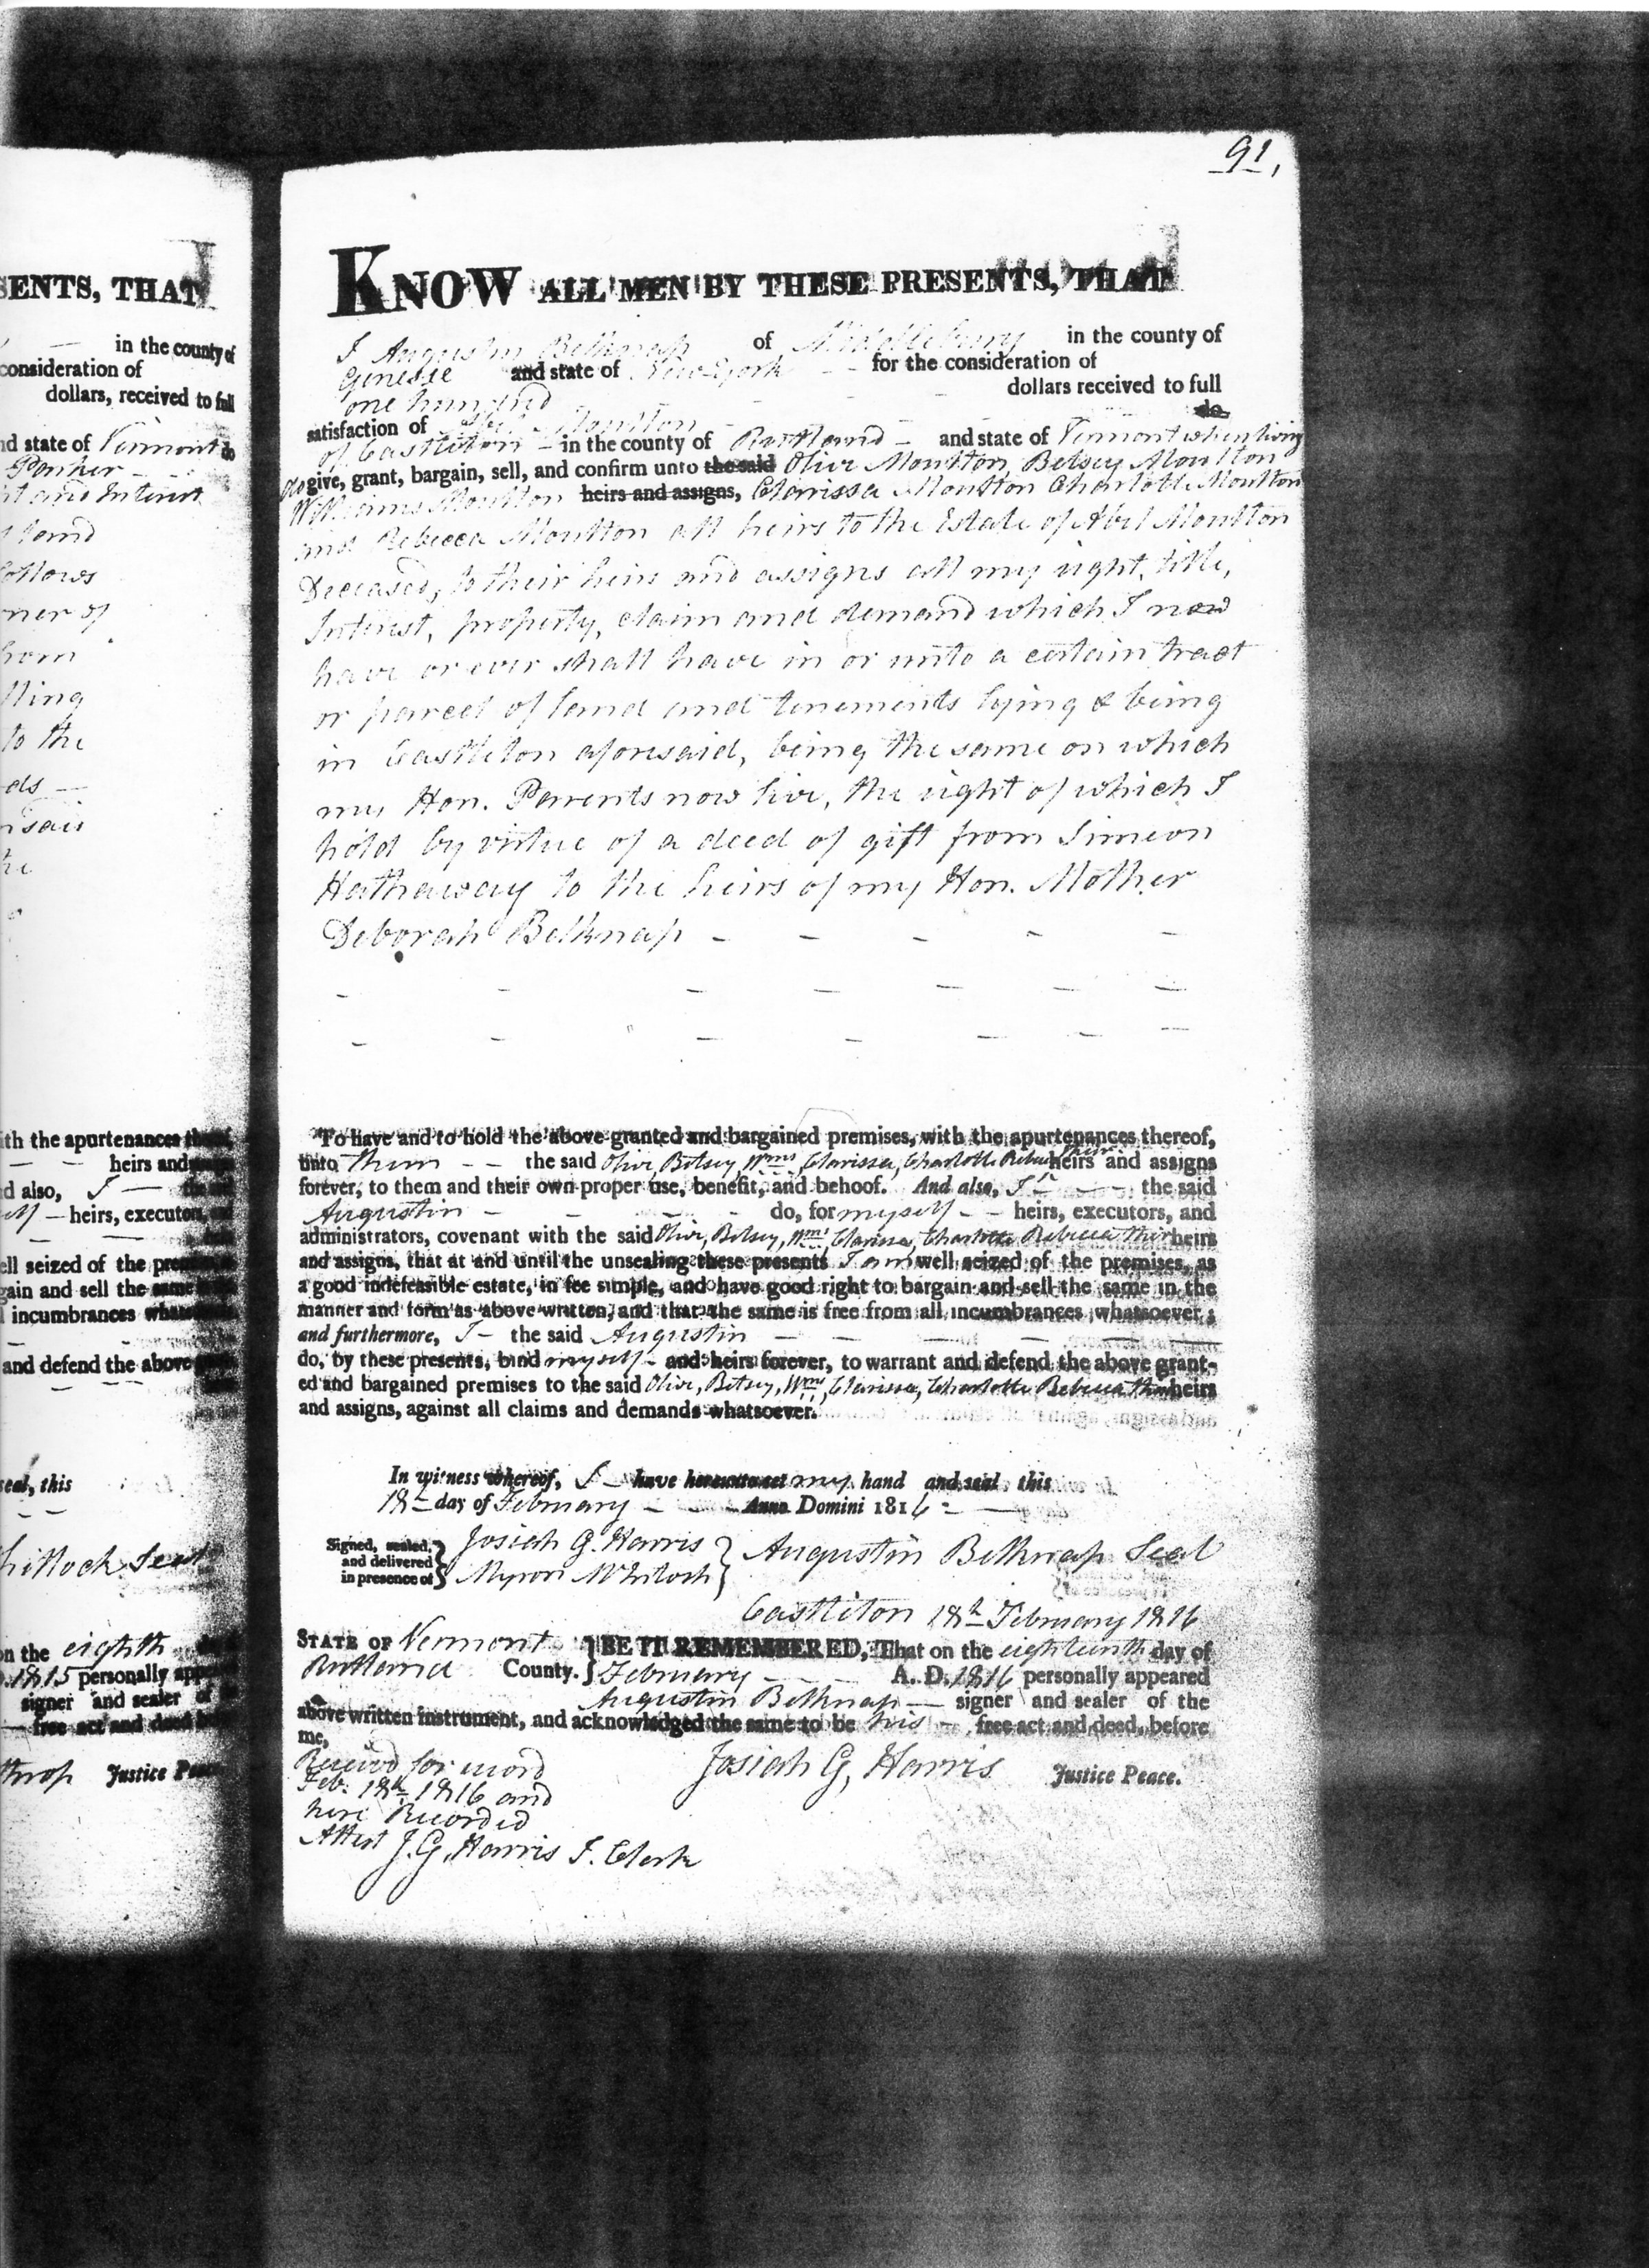 SENTS, THAT
in the county of
consideration of
dollars, received to full
nd state of Vermont do
Parker
and Interest
land
follows
ner of
from
lling
to the
ds
said
ith the apurtenances
heirs and
d also, I
heirs, executors,
ell seized of the
gain and sell the same
incumbrances
and defend the above
seal, this
Seal
on the eighth
1815 personally
signer and sealer of
free act and deed
Justice
91,
KNOW ALL MEN BY THESE PRESENTS, THAT
I Augustin Belknap of Middlebury in the county of
Genesee and state of New York for the consideration of
one hundred dollars received to full
satisfaction of Abel Moulton do
of Castleton in the county of Rutland and state of Vermont when living
do give, grant, bargain, sell, and confirm unto the said Olive Moulton, Betsey Moulton
Williams Moulton heirs and assigns, Clarissa Moulton Charlotte Moulton
and Rebecca Moulton all heirs to the Estate of Abel Moulton
Deceased, to their heirs and assigns all my right, title,
Interest, property, claim and demand which I now
have or ever shall have in or unto a certain tract
or parcel of land and tenements lying & being
in Castleton aforesaid, being the same on which
my Hon. Parents now live, the right of which I
hold by virtue of a deed of gift from Simeon
Hathaway to the heirs of my Hon. Mother
Deborah Belknap
To have and to hold the above granted and bargained premises, with the apurtenances thereof,
unto them the said Olive, Betsey, Wms, Clarissa, Charlotte Rebecca their heirs and assigns
forever, to them and their own proper use, benefit, and behoof. And also, I the said
Augustin do, for myself heirs, executors, and
administrators, covenant with the said Olive, Betsey, Wms, Clarissa, Charlotte Rebecca their heirs
and assigns, that at and until the unsealing these presents I am well seized of the premises, as
a good indefeasible estate, in fee simple, and have good right to bargain and sell the same in the
manner and form as above written, and that the same is free from all incumbrances whatsoever;
and furthermore, I the said Augustin
do, by these presents, bind myself and heirs forever, to warrant and defend the above grant-
ed and bargained premises to the said Olive, Betsey, Wms, Clarissa, Charlotte Rebecca their heirs
and assigns, against all claims and demands whatsoever.
In witness whereof, I have hereunto set my hand and seal this
18th day of February Anno Domini 1816
Signed, sealed, and delivered in presence of } Josiah G. Harris
Myron Whitlock } Augustin Belknap Seal
Castleton 18th February 1816
STATE OF Vermont } BE IT REMEMBERED, That on the eighteenth day of
Rutland County. } February A. D. 1816 personally appeared
Augustin Belknap signer and sealer of the
above written instrument, and acknowledged the same to be his free act and deed, before
me,
Josiah G. Harris Justice Peace.
Received for record
Feb. 18th 1816 and
here Recorded
Attest J. G. Harris T. Clerk